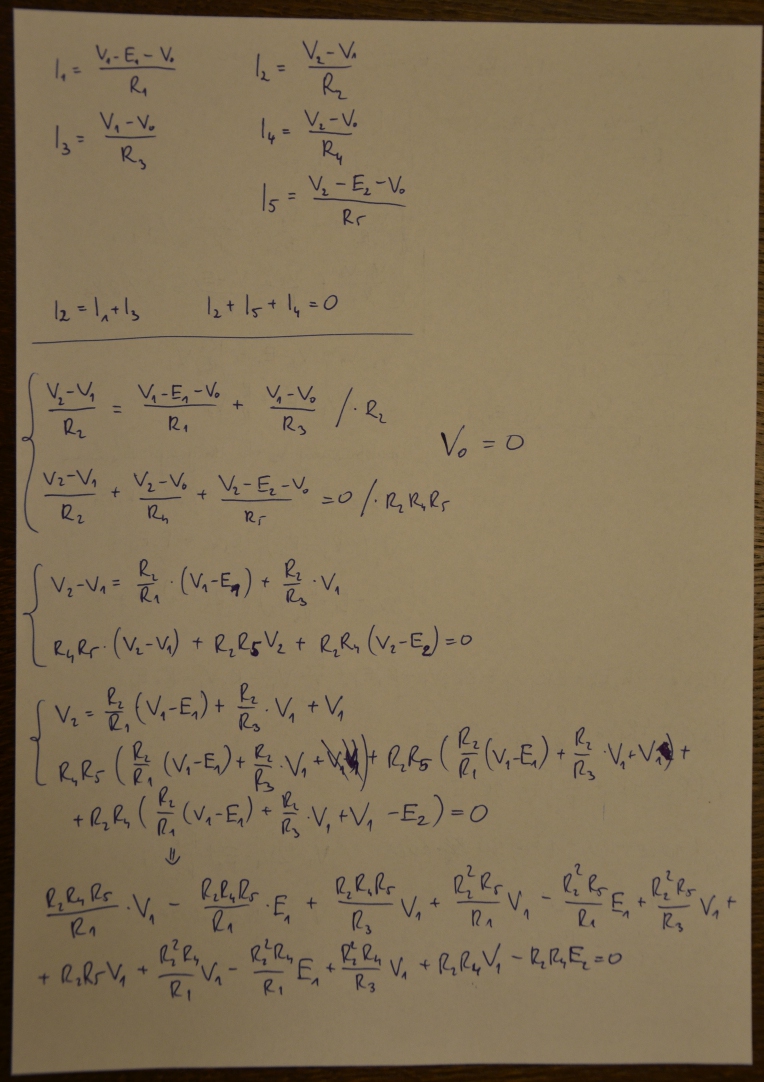 I₁ = (V₁-E₁-V₀)/R₁    I₂ = (V₂-V₁)/R₂
I₃ = (V₁-V₀)/R₃    I₄ = (V₂-V₀)/R₄
I₅ = (V₂-E₂-V₀)/R₅
I₂ = I₁+I₃    I₂+I₅+I₄=0
(V₂-V₁)/R₂ = (V₁-E₁-V₀)/R₁ + (V₁-V₀)/R₃ /·R₂
V₀ = 0
(V₂-V₁)/R₂ + (V₂-V₀)/R₄ + (V₂-E₂-V₀)/R₅ =0 /·R₂R₄R₅
V₂-V₁ = R₂/R₁ · (V₁-E₁) + R₂/R₃ · V₁
R₄R₅·(V₂-V₁) + R₂R₅V₂ + R₂R₄(V₂-E₂)=0
V₂ = R₂/R₁ (V₁-E₁) + R₂/R₃ · V₁ + V₁
R₄R₅ (R₂/R₁ (V₁-E₁) + R₂/R₃ · V₁) + R₂R₅ (R₂/R₁ (V₁-E₁) + R₂/R₃ · V₁+V₁) +
+ R₂R₄ (R₂/R₁ (V₁-E₁) + R₂/R₃ · V₁ + V₁ - E₂) = 0
⇓
R₂R₄R₅/R₁ · V₁ - R₂R₄R₅/R₁ · E₁ + R₂R₄R₅/R₃ V₁ + R₂²R₅/R₁ V₁ - R₂²R₅/R₁ E₁ + R₂²R₅/R₃ V₁ +
+ R₂R₅V₁ + R₂²R₄/R₁ V₁ - R₂²R₄/R₁ E₁ + R₂²R₄/R₃ V₁ + R₂R₄V₁ - R₂R₄E₂=0